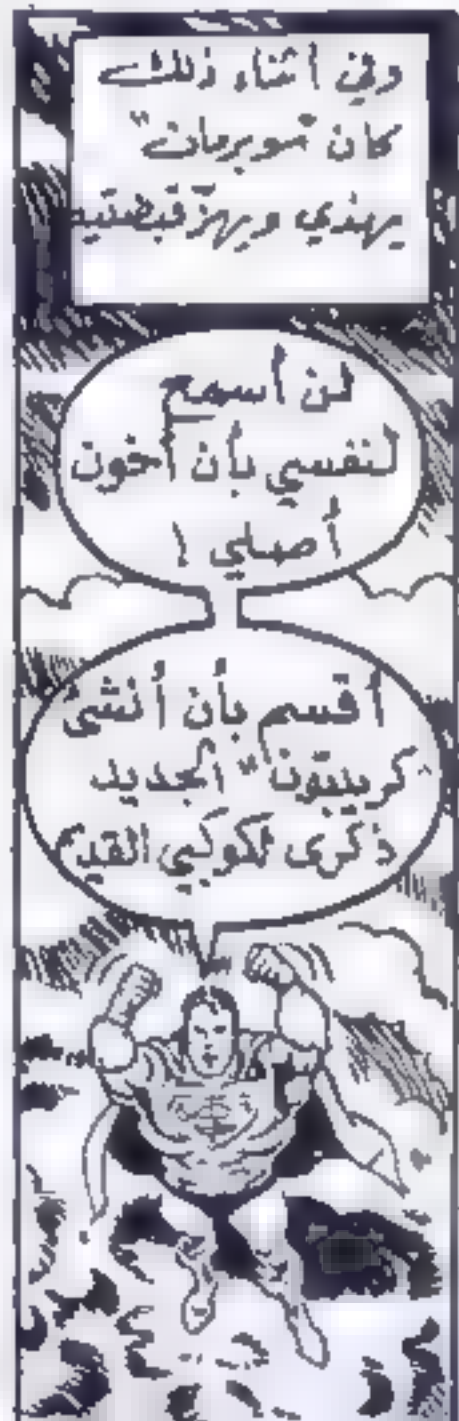 وفي أثناء ذلك
كان "سوبرمان"
يهذي ويهزّ قبضتيه
لن أسمع
لنفسي بأن أخون
أصلي !
أقسم بأن أنشئ
"كريبتون" الجديد
ذكرى لكوكبي القديم